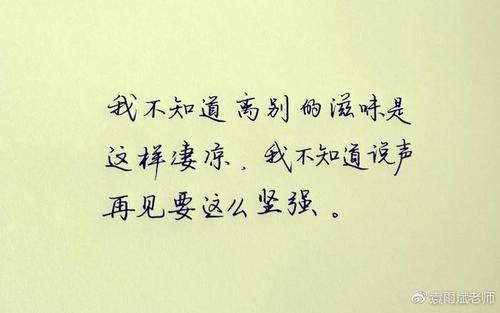 我不知道离别的滋味是
这样凄凉，我不知道说声
再见要这么坚强。
@袁雨斌老师